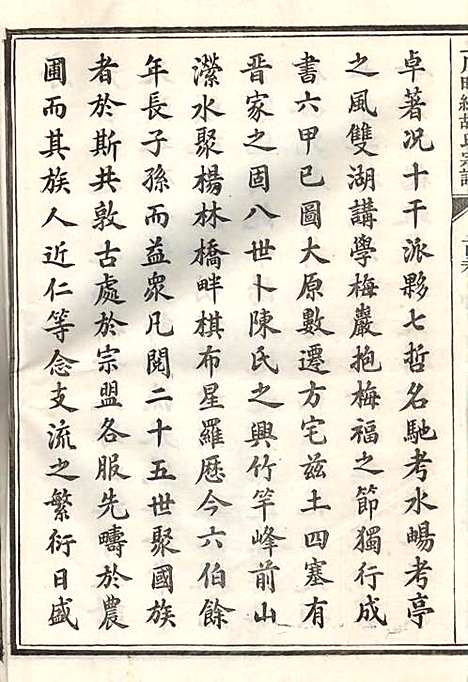 明經胡氏宗譜
卓著况十干派夥七哲名馳考水暢考亭
之風雙湖講學梅巖抱梅福之節獨行成
書六甲已圖大原數遷方宅茲土四塞有
晉家之固八世卜陳氏之興竹竿峰前山
瀠水聚楊林橋畔棋布星羅歷今六伯餘
年長子孫而益衆凡閱二十五世聚國族
者於斯共敦古處於宗盟各服先疇於農
圃而其族人近仁等念支流之繁衍日盛